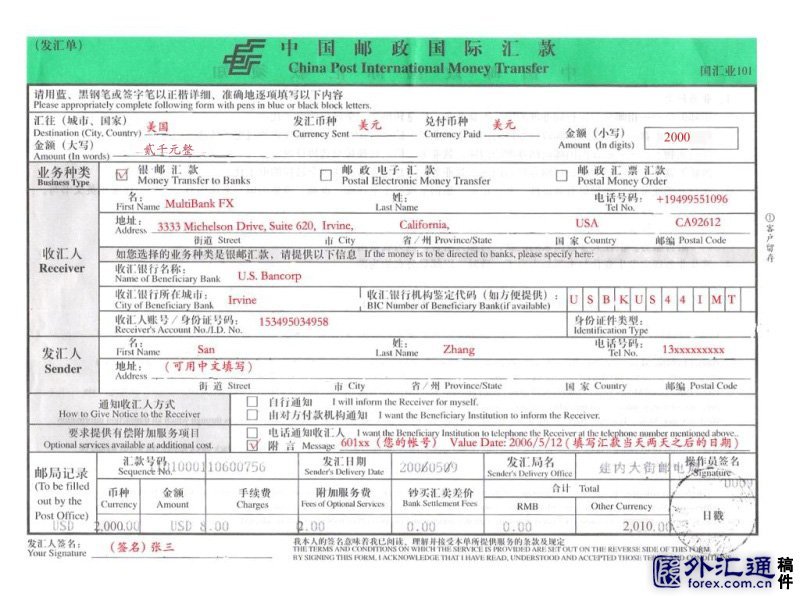 (发汇单)
中国邮政国际汇款
China Post International Money Transfer
国汇业101
请用蓝、黑钢笔或签字笔以正楷详细、准确地逐项填写以下内容
Please appropriately complete following form with pens in blue or black block letters.
汇往(城市、国家) 美国 发汇币种 美元 兑付币种 美元 金额(小写) 2000
Destination (City, Country) Currency Sent Currency Paid Amount (In digits)
金额(大写) 贰千元整
Amount (In words)
业务种类 ☑ 银邮汇款 □ 邮政电子汇款 □ 邮政汇票汇款
Business Type Money Transfer to Banks Postal Electronic Money Transfer Postal Money Order
收汇人
Receiver
名: MultiBank FX 姓: 电话号码: +19499551096
First Name Last Name Tel No.
地址: 3333 Michelson Drive, Suite 620, Irvine, California, USA CA92612
Address
街道 Street 市 City 省/州 Province/State 国家 Country 邮编 Postal Code
如您选择的业务种类是银邮汇款,请提供以下信息 If the money is to be directed to banks, please specify here:
收汇银行名称: U.S. Bancorp
Name of Beneficiary Bank
收汇银行所在城市: Irvine 收汇银行机构鉴定代码(如方便提供): USBKUS44IMT
City of Beneficiary Bank BIC Number of Beneficiary Bank(if available)
收汇人账号/身份证号码: 153495034958 身份证件类型:
Receiver's Account No./I.D. No. Identification Type
发汇人
Sender
名: San 姓: Zhang 电话号码: 13xxxxxxxxx
First Name Last Name Tel No.
地址: (可用中文填写)
Address
街道 Street 市 City 省/州 Province/State 国家 Country 邮编 Postal Code
通知收汇人方式 □ 自行通知 I will inform the Receiver for myself.
How to Give Notice to the Receiver □ 由对方付款机构通知 I want the Beneficiary Institution to inform the Receiver.
要求提供有偿附加服务项目 □ 电话通知收汇人 I want the Beneficiary Institution to telephone the Receiver at the telephone number mentioned above.
Optional services available at additional cost. ☑ 附言 Message 601xx(您的帐号) Value Date: 2006/5/12(填写汇款当天两天之后的日期)
邮局记录
(To be filled
out by the
Post Office)
汇款号码 发汇日期 20060509 发汇局名 建内大街邮电局 操作员签名
Sequence No. 1000110600756 Sender's Delivery Date Sender's Delivery Office Signature
币种 金额 手续费 附加服务费 钞买汇卖差价 合计 Total
Currency Amount Charges Fees of Optional Services Bank Settlement Fees RMB Other Currency
USD 2,000.00 USD 8.00 2.00 0.00 0.00 2,010.00
日戳
发汇人签名: (签名)张三
Your Signature
我本人的签名意味着我已阅读、理解并接受本单所提供服务的条款及规定
THE TERMS AND CONDITIONS ON WHICH THE SERVICE IS PROVIDED ARE SET OUT ON THE REVERSE SIDE OF THIS FORM.
BY SIGNING THIS FORM, I ACKNOWLEDGE THAT I HAVE READ, UNDERSTOOD AND ACCEPTED THOSE TERMS AND CONDITIONS
①客户留存
外汇通 稿件
forex.com.cn